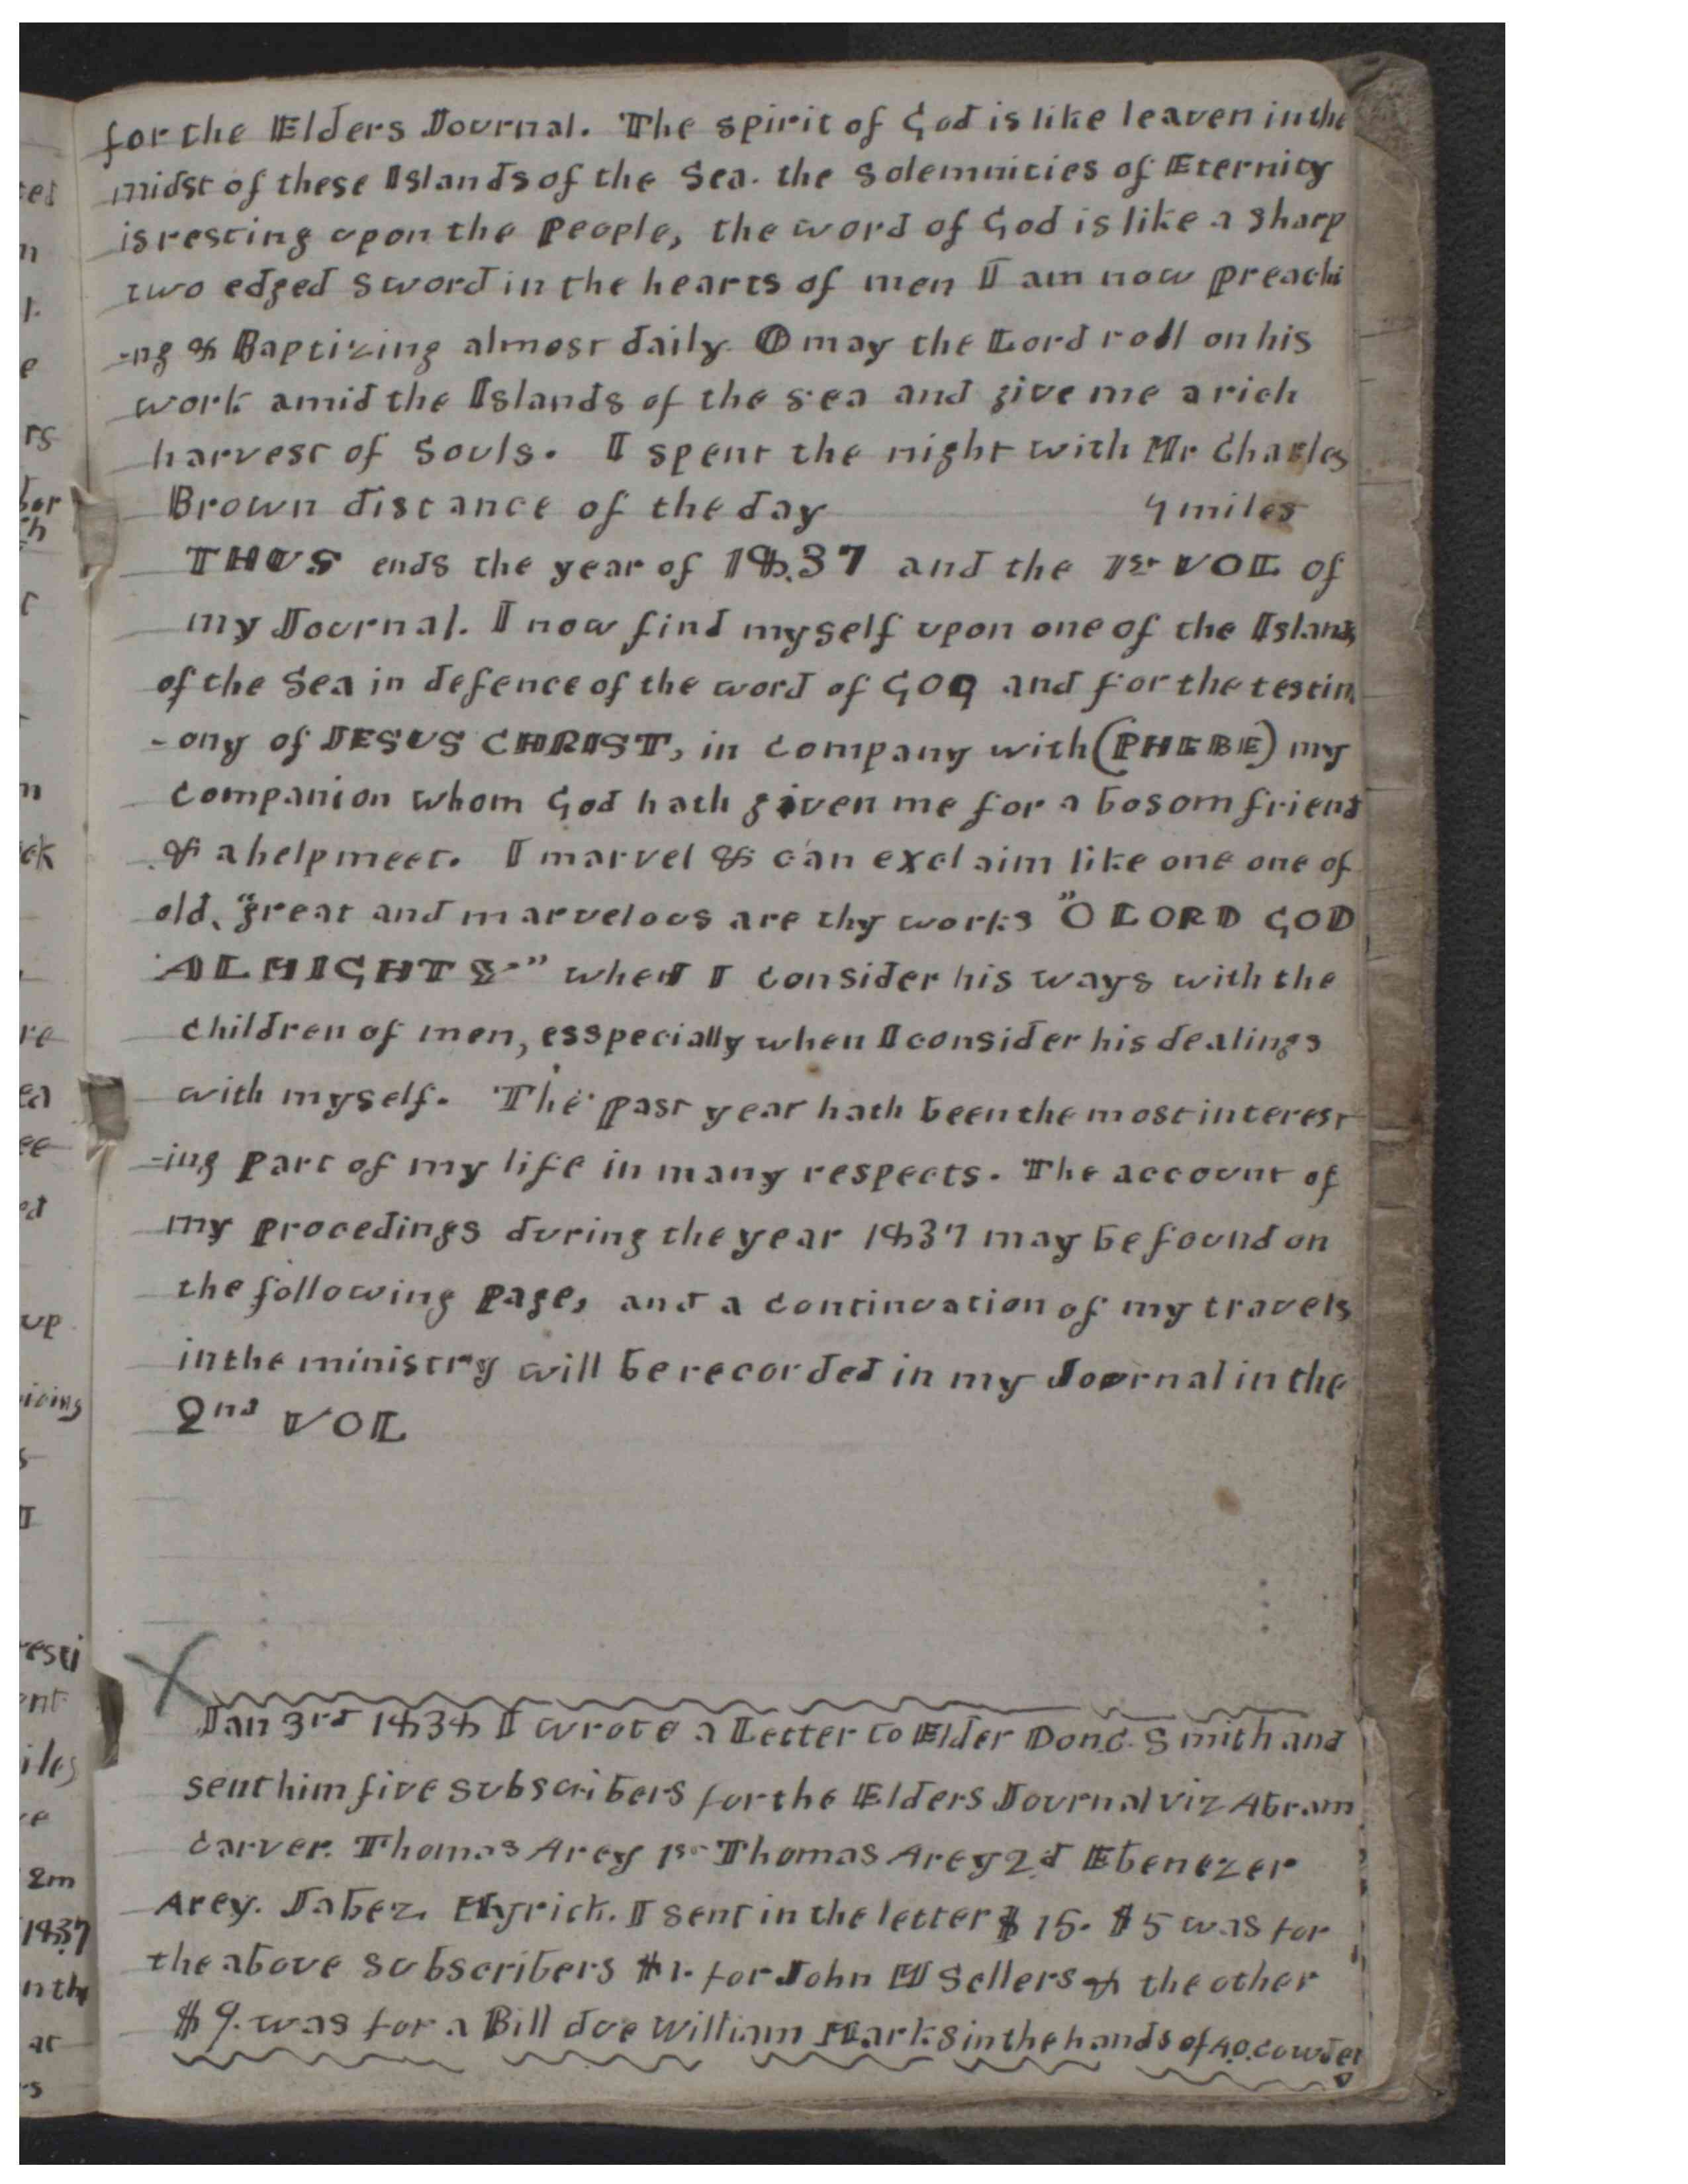 for the Elders Journal. The spirit of God is like leaven in the
midst of these Islands of the Sea. the Solemnities of Eternity
is resting upon the People, the word of God is like a Sharp
two edged Sword in the hearts of men I am now preachi
-ng & Baptizing almost daily. O may the Lord roll on his
work amid the Islands of the sea and give me a rich
harvest of Souls. I spent the night with Mr Charles
Brown distance of the day 4 miles
THUS ends the year of 1837 and the 1st VOL of
my Journal. I now find myself upon one of the Islands
of the Sea in defence of the word of GOD and for the testim
-ony of JESUS CHRIST, in company with (PHEBE) my
companion whom God hath given me for a bosom friend
& a helpmeet. I marvel & can exclaim like one one of
old, "great and marvelous are thy works "O LORD GOD
ALMIGHTY" when I consider his ways with the
children of men, esspecially when I consider his dealings
with myself. The past year hath been the most interest
-ing part of my life in many respects. The account of
my procedings during the year 1837 may be found on
the following page, and a continuation of my travels
in the ministry will be recorded in my Journal in the
2nd VOL
Jan 3rd 1838 I wrote a Letter to Elder Don C. Smith and
sent him five subscribers for the Elders Journal viz Abram
Carver. Thomas Arey 1st Thomas Arey 2d Ebenezer
Arey. Jabez. Myrick. I sent in the letter $15. $5 was for
the above Subscribers $1. for John M Sellers & the other
$9. was for a Bill due William Marks in the hands of A.O. Cowder